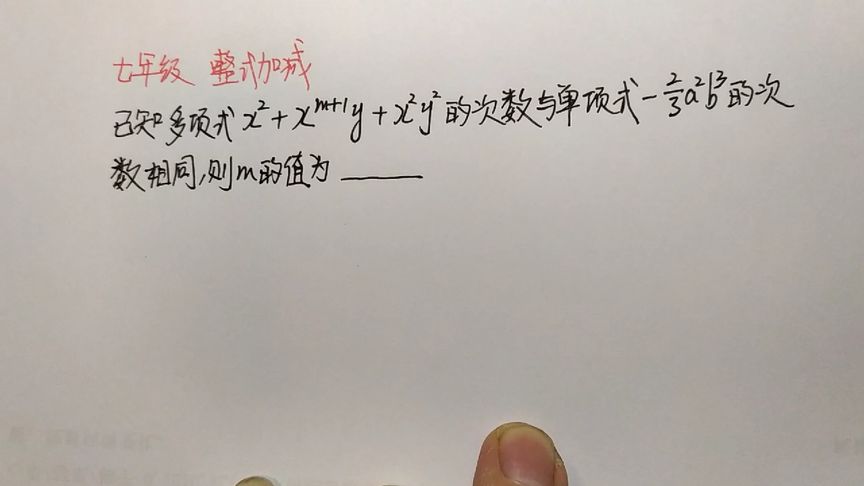 七年级 整式加减
已知多项式x²+x^{m+1}y+x²y²的次数与单项式-\frac{2}{3}a²b³的次
数相同,则m的值为____